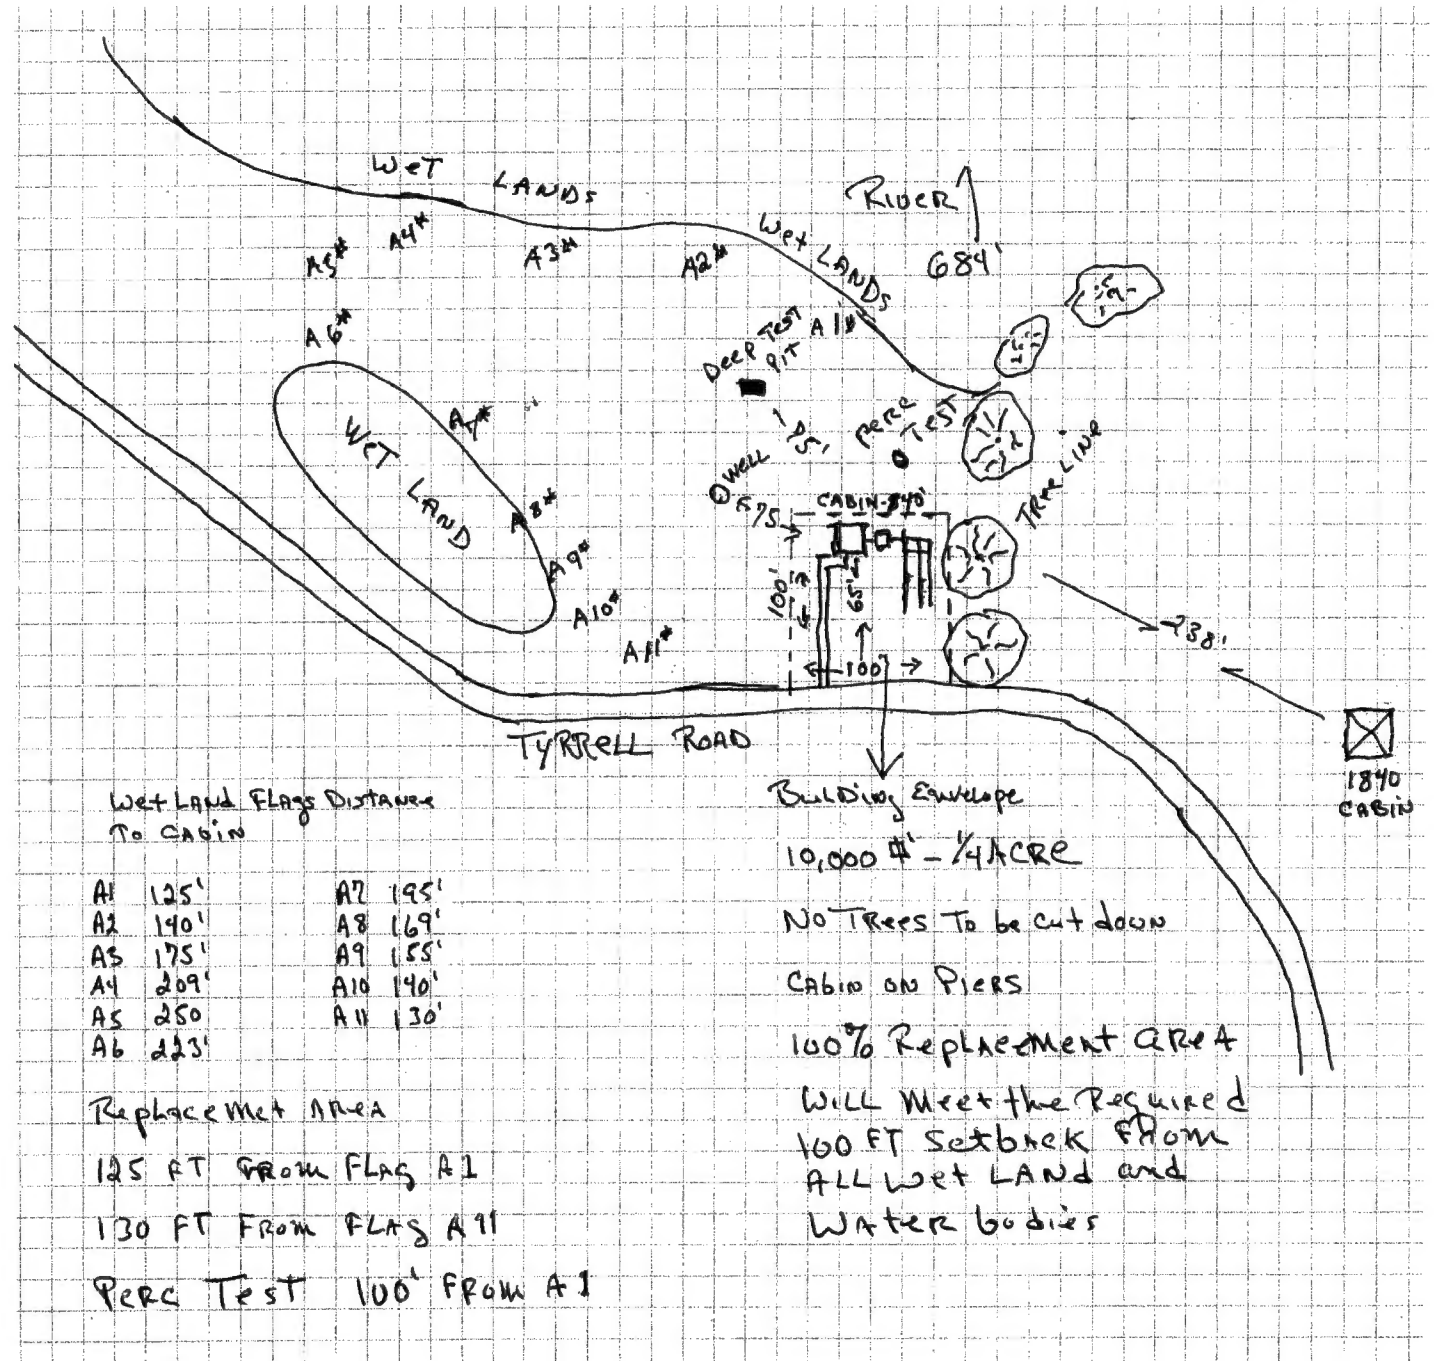 WeT LANDS
RIVER
684'
Wet LANDs
A5*
A4*
A3*
A2*
A1*
A6*
Deep Test
Pit
95'
Perc
Test
A7*
WeT
LAND
Well
75
CABIN-840'
TRee Line
A8*
A9*
A10*
A11*
100'
65'
100
238'
TYRRELL ROAD
1840
CABIN
WetLAnd FLAgs DistAnce
To CABiN
A1 125' A7 195'
A2 140' A8 169'
A3 175' A9 155'
A4 209' A10 140'
A5 250 A11 130'
A6 223'
ReplAceMet AReA
125 FT FROM FLAg A1
130 FT FROM FLAg A11
PeRc TesT 100' FRoM A1
BuiLDing Envelope
10,000 #' - 1/4 ACRe
No TRees To be cut down
CABin on PieRs
100% ReplAceMent AReA
WiLL Meet the Required
100 FT SetbAck FRom
ALL Wet LAnd and
WAteR bodies